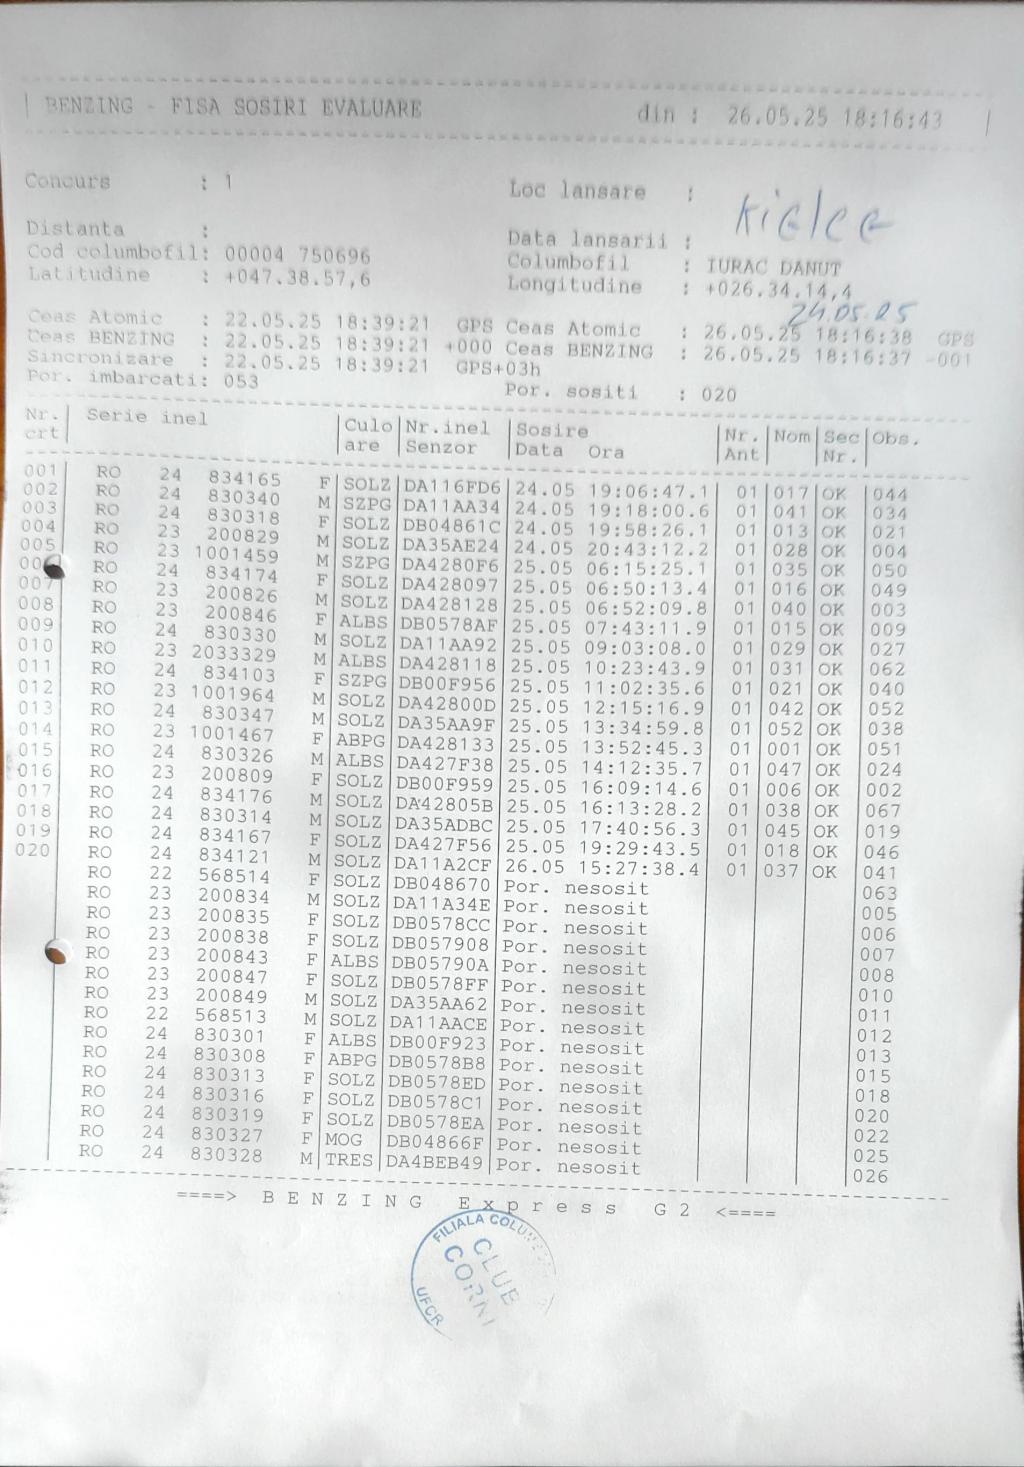 BENZING - FISA SOSIRI EVALUARE din : 26.05.25 18:16:43
Concurs : 1 Loc lansare : Kielce
Distanta : Data lansarii : 24.05.25
Cod columbofil: 00004 750696 Columbofil : IURAC DANUT
Latitudine : +047.38.57,6 Longitudine : +026.34.14,4
Ceas Atomic : 22.05.25 18:39:21 GPS Ceas Atomic : 26.05.25 18:16:38 GPS
Ceas BENZING : 22.05.25 18:39:21 +000 Ceas BENZING : 26.05.25 18:16:37 -001
Sincronizare : 22.05.25 18:39:21 GPS+03h
Por. imbarcati: 053 Por. sositi : 020
Nr. Serie inel Culo Nr.inel Sosire Nr. Nom Sec Obs.
crt are Senzor Data Ora Ant Nr.
001 RO 24 834165 F SOLZ DA116FD6 24.05 19:06:47.1 01 017 OK 044
002 RO 24 830340 M SZPG DA11AA34 24.05 19:18:00.6 01 041 OK 034
003 RO 24 830318 F SOLZ DB04861C 24.05 19:58:26.1 01 013 OK 021
004 RO 23 200829 M SOLZ DA35AE24 24.05 20:43:12.2 01 028 OK 004
005 RO 23 1001459 M SZPG DA4280F6 25.05 06:15:25.1 01 035 OK 050
RO 24 834174 F SOLZ DA428097 25.05 06:50:13.4 01 016 OK 049
007 RO 23 200826 M SOLZ DA428128 25.05 06:52:09.8 01 040 OK 003
008 RO 23 200846 F ALBS DB0578AF 25.05 07:43:11.9 01 015 OK 009
009 RO 24 830330 M SOLZ DA11AA92 25.05 09:03:08.0 01 029 OK 027
010 RO 23 2033329 M ALBS DA428118 25.05 10:23:43.9 01 031 OK 062
011 RO 24 834103 F SZPG DB00F956 25.05 11:02:35.6 01 021 OK 040
012 RO 23 1001964 M SOLZ DA42800D 25.05 12:15:16.9 01 042 OK 052
013 RO 24 830347 M SOLZ DA35AA9F 25.05 13:34:59.8 01 052 OK 038
014 RO 23 1001467 F ABPG DA428133 25.05 13:52:45.3 01 001 OK 051
015 RO 24 830326 M ALBS DA427F38 25.05 14:12:35.7 01 047 OK 024
016 RO 23 200809 F SOLZ DB00F959 25.05 16:09:14.6 01 006 OK 002
017 RO 24 834176 M SOLZ DA42805B 25.05 16:13:28.2 01 038 OK 067
018 RO 24 830314 M SOLZ DA35ADBC 25.05 17:40:56.3 01 045 OK 019
019 RO 24 834167 F SOLZ DA427F56 25.05 19:29:43.5 01 018 OK 046
020 RO 24 834121 M SOLZ DA11A2CF 26.05 15:27:38.4 01 037 OK 041
RO 22 568514 F SOLZ DB048670 Por. nesosit 063
RO 23 200834 M SOLZ DA11A34E Por. nesosit 005
RO 23 200835 F SOLZ DB0578CC Por. nesosit 006
RO 23 200838 F SOLZ DB057908 Por. nesosit 007
RO 23 200843 F ALBS DB05790A Por. nesosit 008
RO 23 200847 F SOLZ DB0578FF Por. nesosit 010
RO 23 200849 M SOLZ DA35AA62 Por. nesosit 011
RO 22 568513 M SOLZ DA11AACE Por. nesosit 012
RO 24 830301 F ALBS DB00F923 Por. nesosit 013
RO 24 830308 F ABPG DB0578B8 Por. nesosit 015
RO 24 830313 F SOLZ DB0578ED Por. nesosit 018
RO 24 830316 F SOLZ DB0578C1 Por. nesosit 020
RO 24 830319 F SOLZ DB0578EA Por. nesosit 022
RO 24 830327 F MOG DB04866F Por. nesosit 025
RO 24 830328 M TRES DA4BEB49 Por. nesosit 026
====> BENZING Express G2 <====
FILIALA
CLUB
CORNI
UFCR